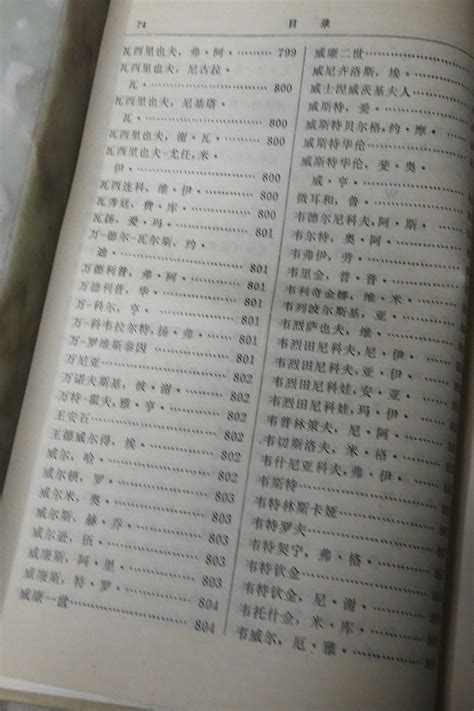 74 目 录
瓦西里也夫，弗·阿·………799
瓦西里也夫，尼古拉·
瓦·…………………800
瓦西里也夫，尼基塔·
瓦·…………………800
瓦西里也夫，谢·瓦·……800
瓦西里也夫-尤任，米·
伊·…………………800
瓦西连科，维·伊·………800
瓦扬，爱·玛·……………801
万-德尔-瓦尔斯，约·
万德利普，弗·阿·………801
万德利普，华·……………801
万-科尔，亨·……………801
万-科韦拉尔特，扬·弗·…801
万-罗维斯泰因……………802
万尼亚……………………802
万诺夫斯基，彼·谢·……802
万特-霍夫，雅·亨·………802
王安石……………………802
王德威尔得，埃·…………802
威尔，哈·…………………802
威尔顿，罗·………………803
威尔米，奥·………………803
威尔斯，赫·乔·…………803
威尔逊，伍·………………803
威廉斯，阿·里·…………803
威廉斯，特·罗·…………804
威廉一世…………………804
威廉二世…………………
威尼齐洛斯，埃·…………
威士涅威茨基夫人………
威斯特，爱·………………
威斯特贝尔格，约·摩·…
威斯特华伦………………
威斯特华伦，斐·奥·
威·亨·……………………
微耳和，鲁·………………
韦德尔尼科夫，阿·斯·…
韦尔特，奥·阿·…………
韦弗伊，劳·………………
韦里金，普·普·…………
韦利奇金娜，维·米·……
韦列波尔斯基，亚·………
韦烈萨也夫，维·…………
韦烈田尼科夫，尼·伊·…
韦烈田尼科娃，安·亚·…
韦烈田尼科娃，玛·伊·…
韦普林策夫，尼·阿·……
韦切斯洛夫，米·格·……
韦什尼亚科夫，弗·伊·…
韦斯特……………………
韦特林斯卡娅……………
韦特罗夫…………………
韦特契宁，弗·格·………
韦特钦金…………………
韦特钦金，尼·谢·………
韦托什金，米·库·………
韦威尔，厄·雅·…………